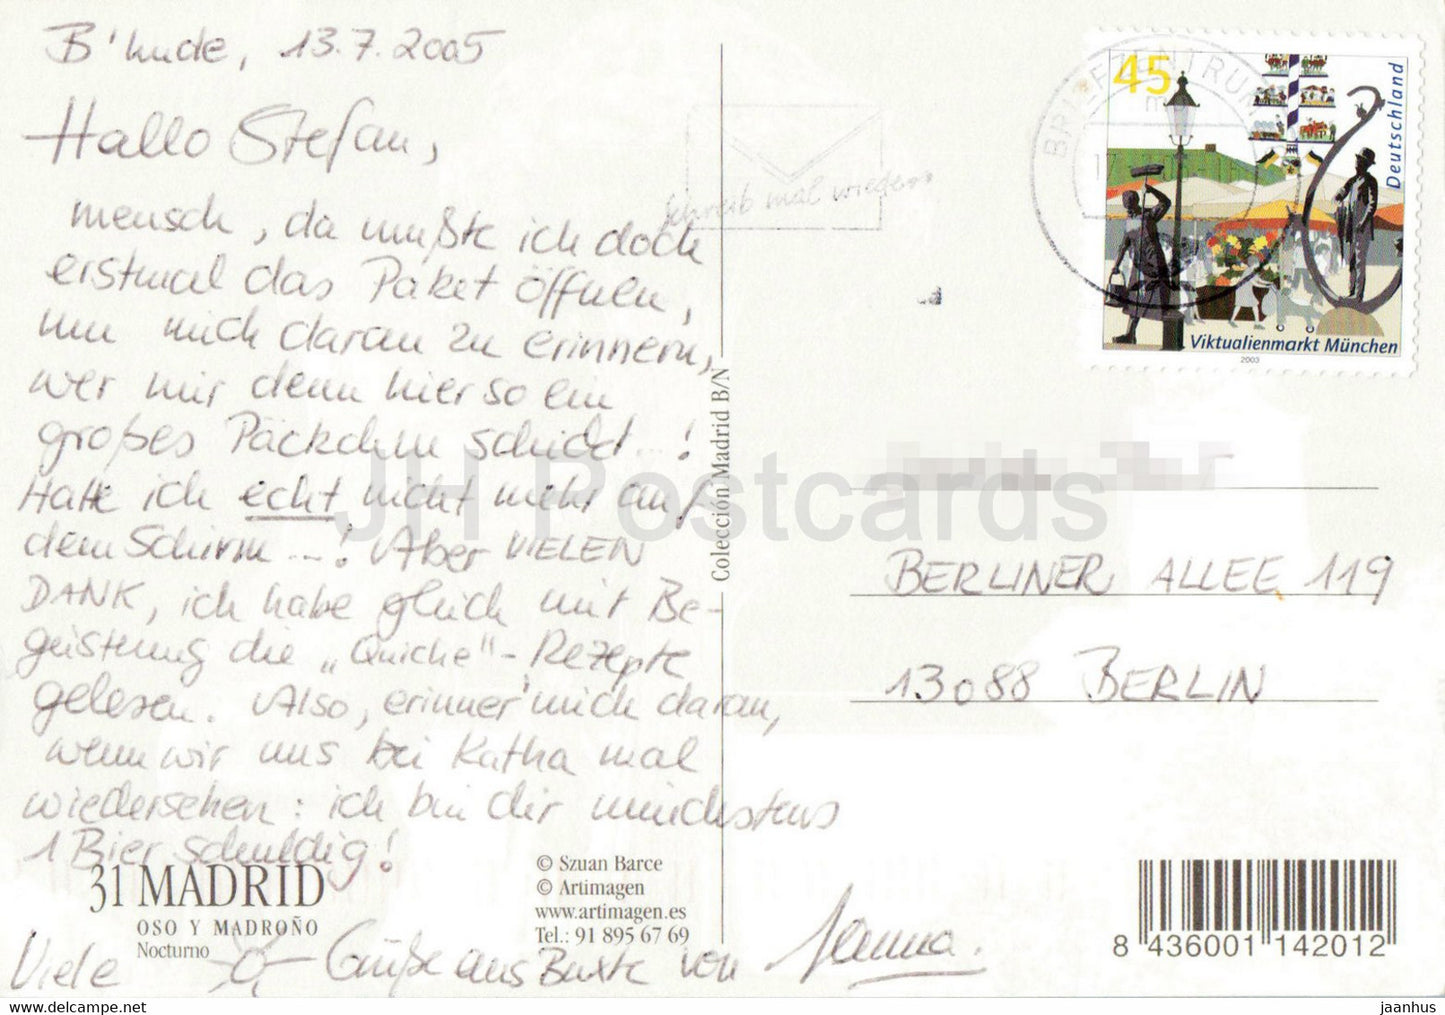 B'hude, 13.7.2005
Hallo Stefan,
mensch, da mußte ich doch
erstmal das Paket öffnen,
um mich daran zu erinnern,
wer mir denn hier so ein
großes Päckchen schickt...!
Hatte ich echt nicht mehr auf
dem Schirm...! Aber VIELEN
DANK, ich habe gleich mit Be-
geisterung die „Quiche"-Rezepte
gelesen. Also, erinner' mich daran,
wenn wir uns bei Katha mal
wiedersehen: ich bin dir mindestens
1 Bier schuldig!
Viele Grüße aus Buxte von
31 MADRID
OSO Y MADROÑO
Nocturno
© Szuan Barce
© Artimagen
www.artimagen.es
Tel.: 91 895 67 69
Colección Madrid B/N
Schreib mal wieder
BRIEFZENTRUM
45
Deutschland
Viktualienmarkt München
2003
BERLINER ALLEE 119
13088 BERLIN
8 436001 142012
JH Postcards
www.delcampe.net
jaanhus